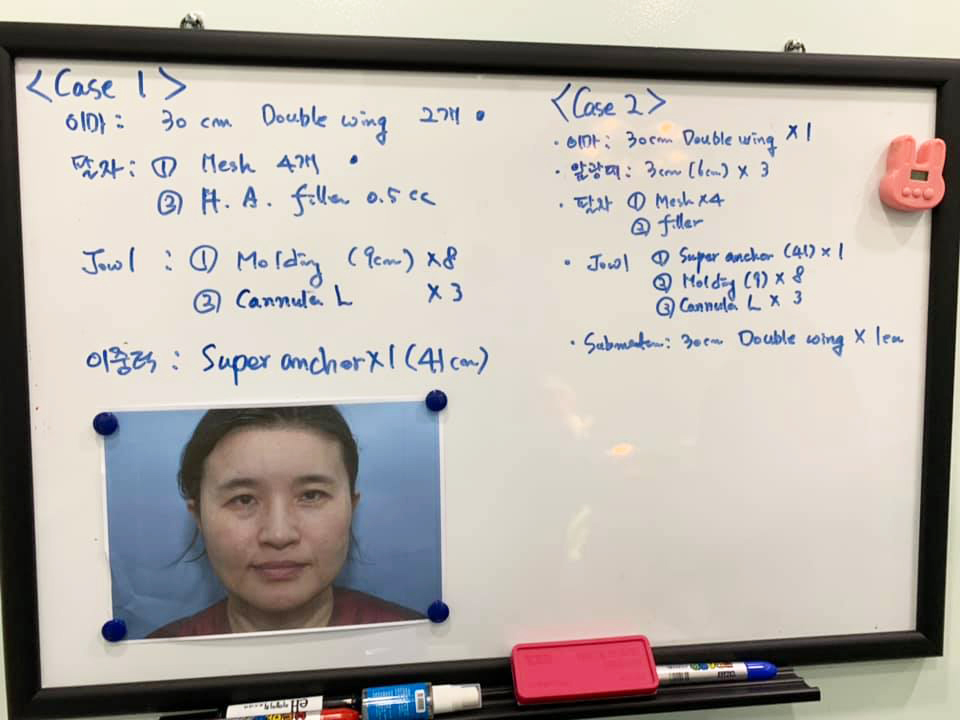 <Case 1>
이마: 30 cm Double wing 2개
팔자: ① Mesh 4개
② H. A. filler 0.5 cc
Jowl : ① Molding (9cm) ×8
② Cannula L ×3
이중턱 : Super anchor×1 (41cm)
<Case 2>
· 이마: 30cm Double wing ×1
· 앞광대: 3cm (6cm) × 3
· 팔자 ① Mesh ×4
② filler
· Jowl ① Super anchor (41) × 1
② Molding (9) × 8
③ Cannula L × 3
30cm Double wing × 1ea